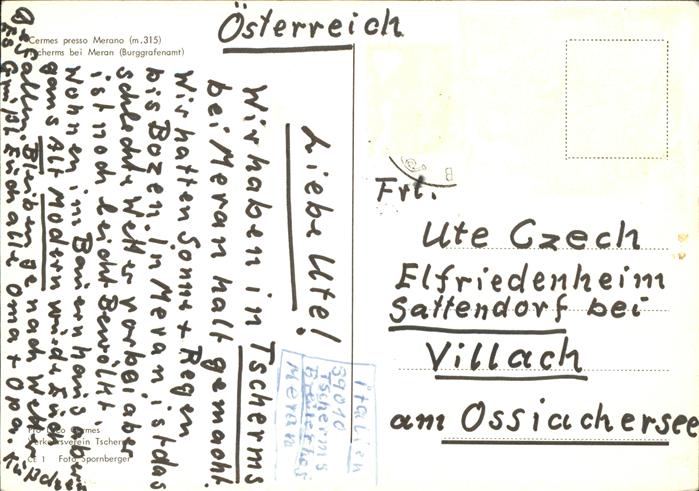 Cermes presso Merano (m.315)
Tscherms bei Meran (Burggrafenamt)
Österreich
Liebe Ute!
Wir haben in Tscherms
bei Meran halt gemacht.
Wir hatten Sonne + Regen
bis Bozen in Meran ist das
schlechte Wetter vorbei aber
ist noch leicht Bewölkt
Wohnen im Bauernhaus aber
ganz Alt Modern würde Euch
Gefallen. Bleiben je nach Wetter
Es Grüßt Euch alle Oma + Opa.
Italien
39010
Tscherms
Meran
Frl.
Ute Czech
Elfriedenheim
Sattendorf bei
Villach
am Ossiachersee
Pro Loco Cermes
Verkehrsverein Tscherms
CE 1 Foto Spornberger